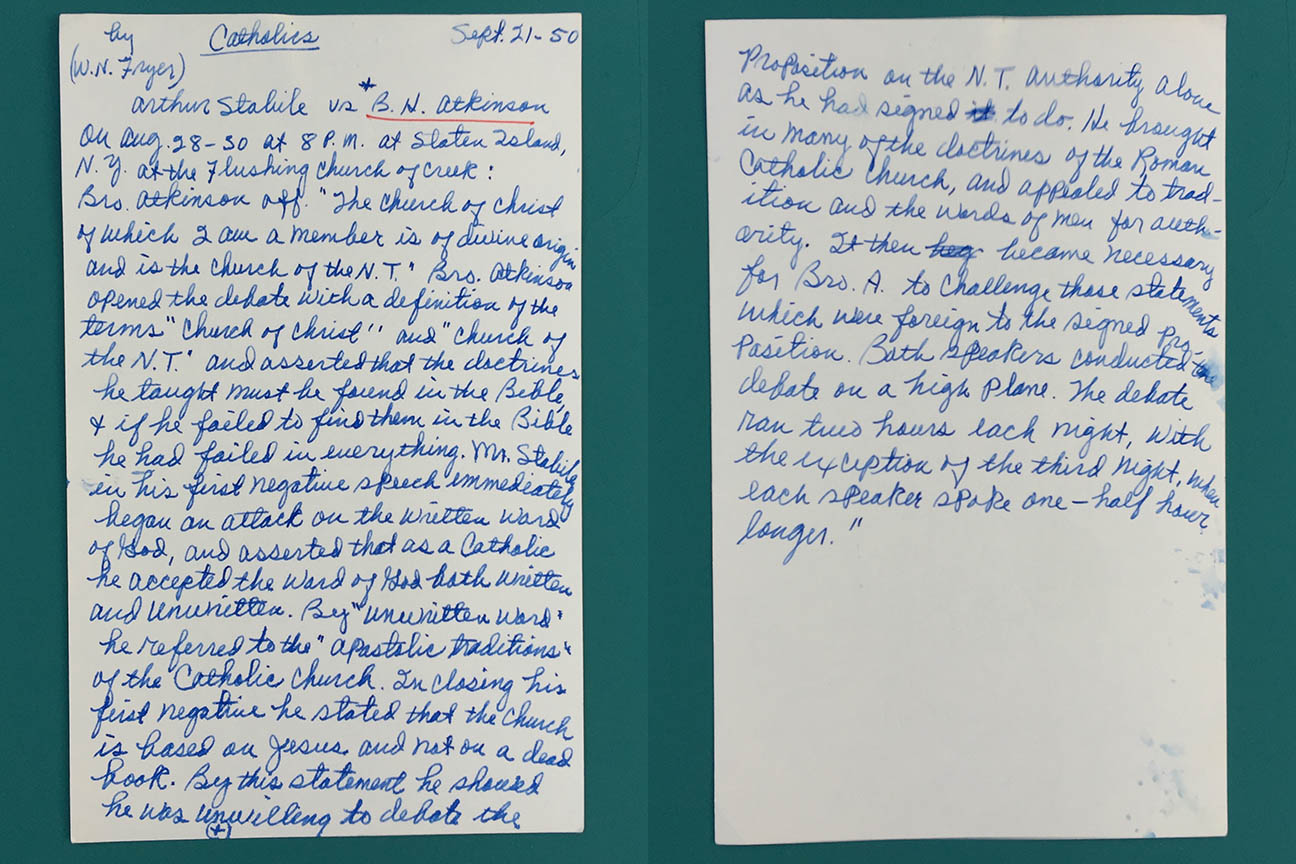 by Catholics Sept. 21-50
(W.N. Fryer)
Arthur Stabile vs *B. H. Atkinson
on Aug. 28-30 at 8 P.M. at Staten Island,
N.Y. at the Flushing church of creek:
Bro. Atkinson aff. "The church of christ
of which I am a member is of divine origin
and is the church of the N.T." Bro. Atkinson
opened the debate with a definition of the
terms "church of christ" and "church of
the N.T." and asserted that the doctrines
he taught must be found in the Bible
& if he failed to find them in the Bible
he had failed in everything. Mr. Stabile
in his first negative speech immediately
began an attack on the written word
of God, and asserted that as a Catholic
he accepted the word of God both written
and unwritten. By "unwritten word"
he referred to the "apostolic traditions"
of the Catholic Church. In closing his
first negative he stated that the church
is based on Jesus and not on a dead
book. By this statement he showed
he was unwilling to debate the
(+)
Proposition on the N.T. authority alone
as he had signed it to do. He brought
in many of the doctrines of the Roman
Catholic Church, and appealed to trad-
ition and the words of men for auth-
ority. It then beg became necessary
for Bro. A. to challenge those statements
which were foreign to the signed pro-
position. Both speakers conducted the
debate on a high plane. The debate
ran two hours each night, with
the exception of the third night, when
each speaker spoke one-half hour
longer."